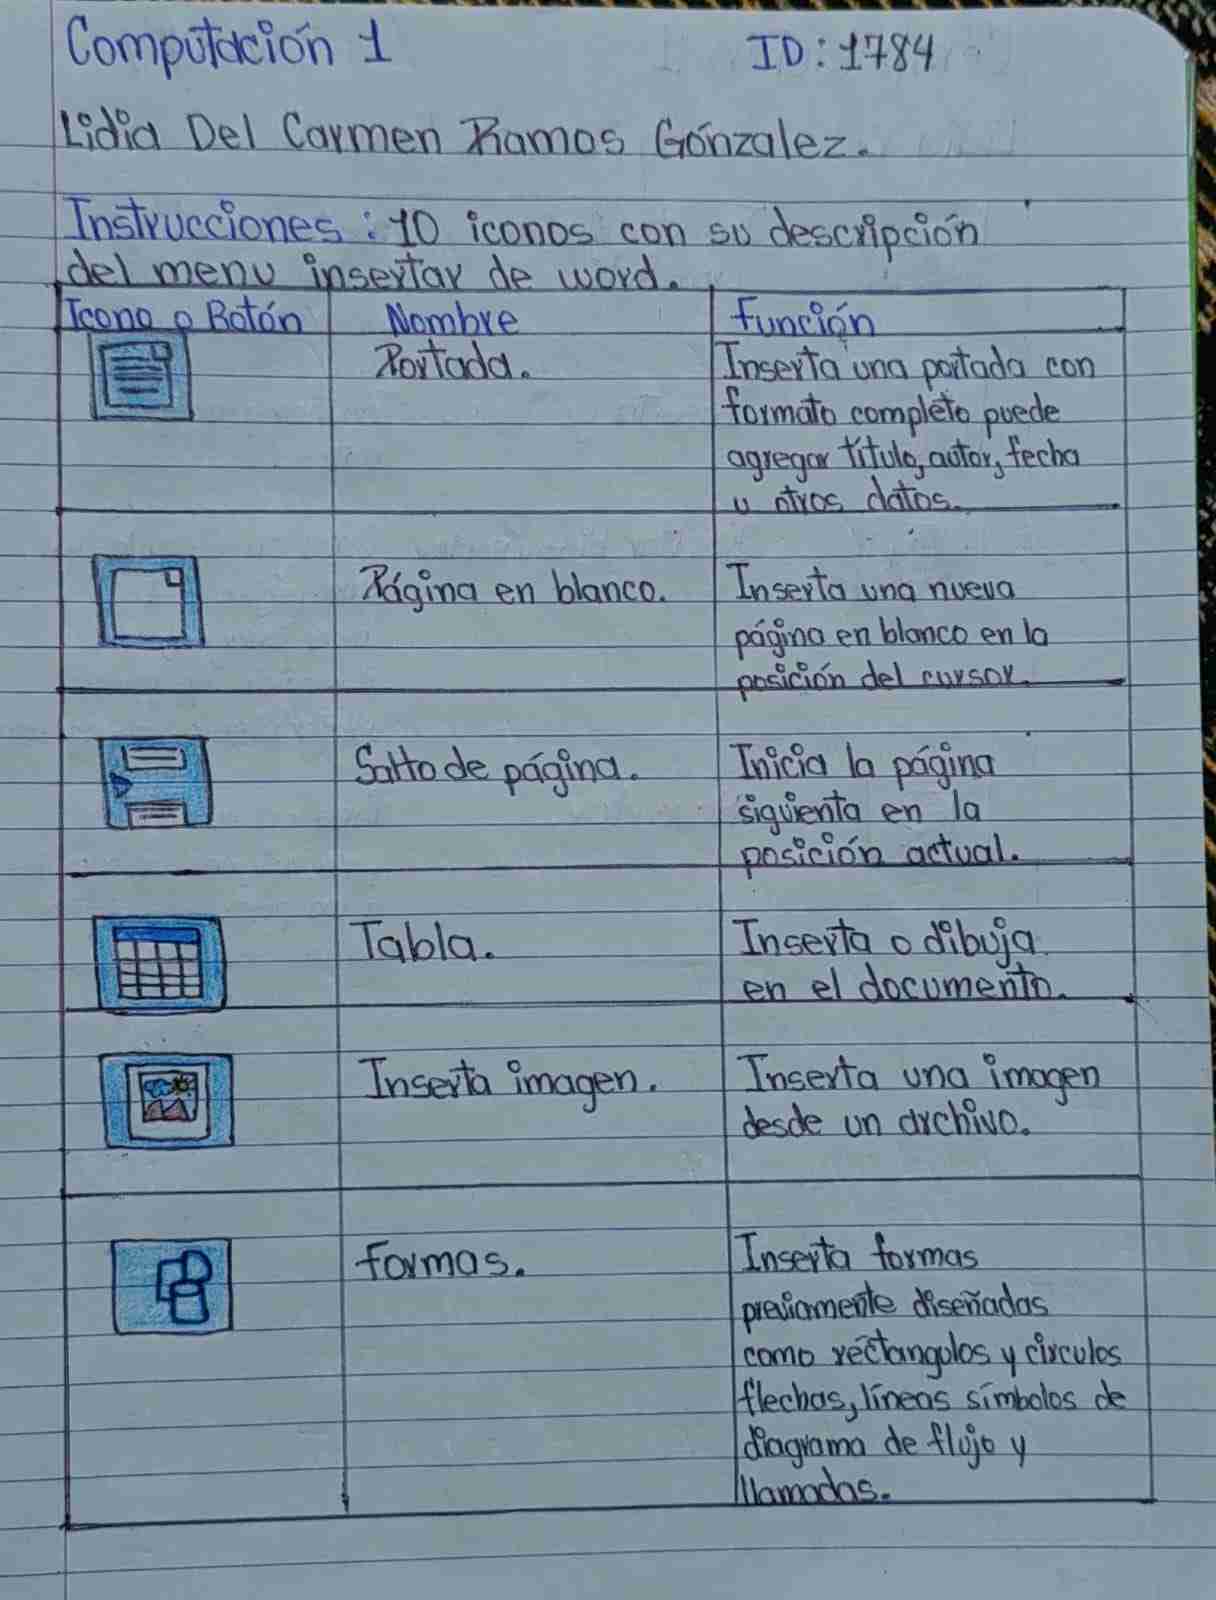 Computación 1 ID: 1784
Lidia Del Carmen Ramos Gónzalez.
Instrucciones: 10 iconos con su descripción
del menu insertar de word.
Icono o Botón Nombre Función
Portada. Inserta una portada con
formato completo puede
agregar título, autor, fecha
u otros datos.
Página en blanco. Inserta una nueva
página en blanco en la
posición del cursor.
Salto de página. Inicia la página
siguienta en la
posición actual.
Tabla. Inserta o dibuja
en el documento.
Inserta imagen. Inserta una imagen
desde un archivo.
Formas. Inserta formas
previamente diseñadas
como réctangulos y circulos
flechas, líneas símbolos de
diagrama de flujo y
llamadas.